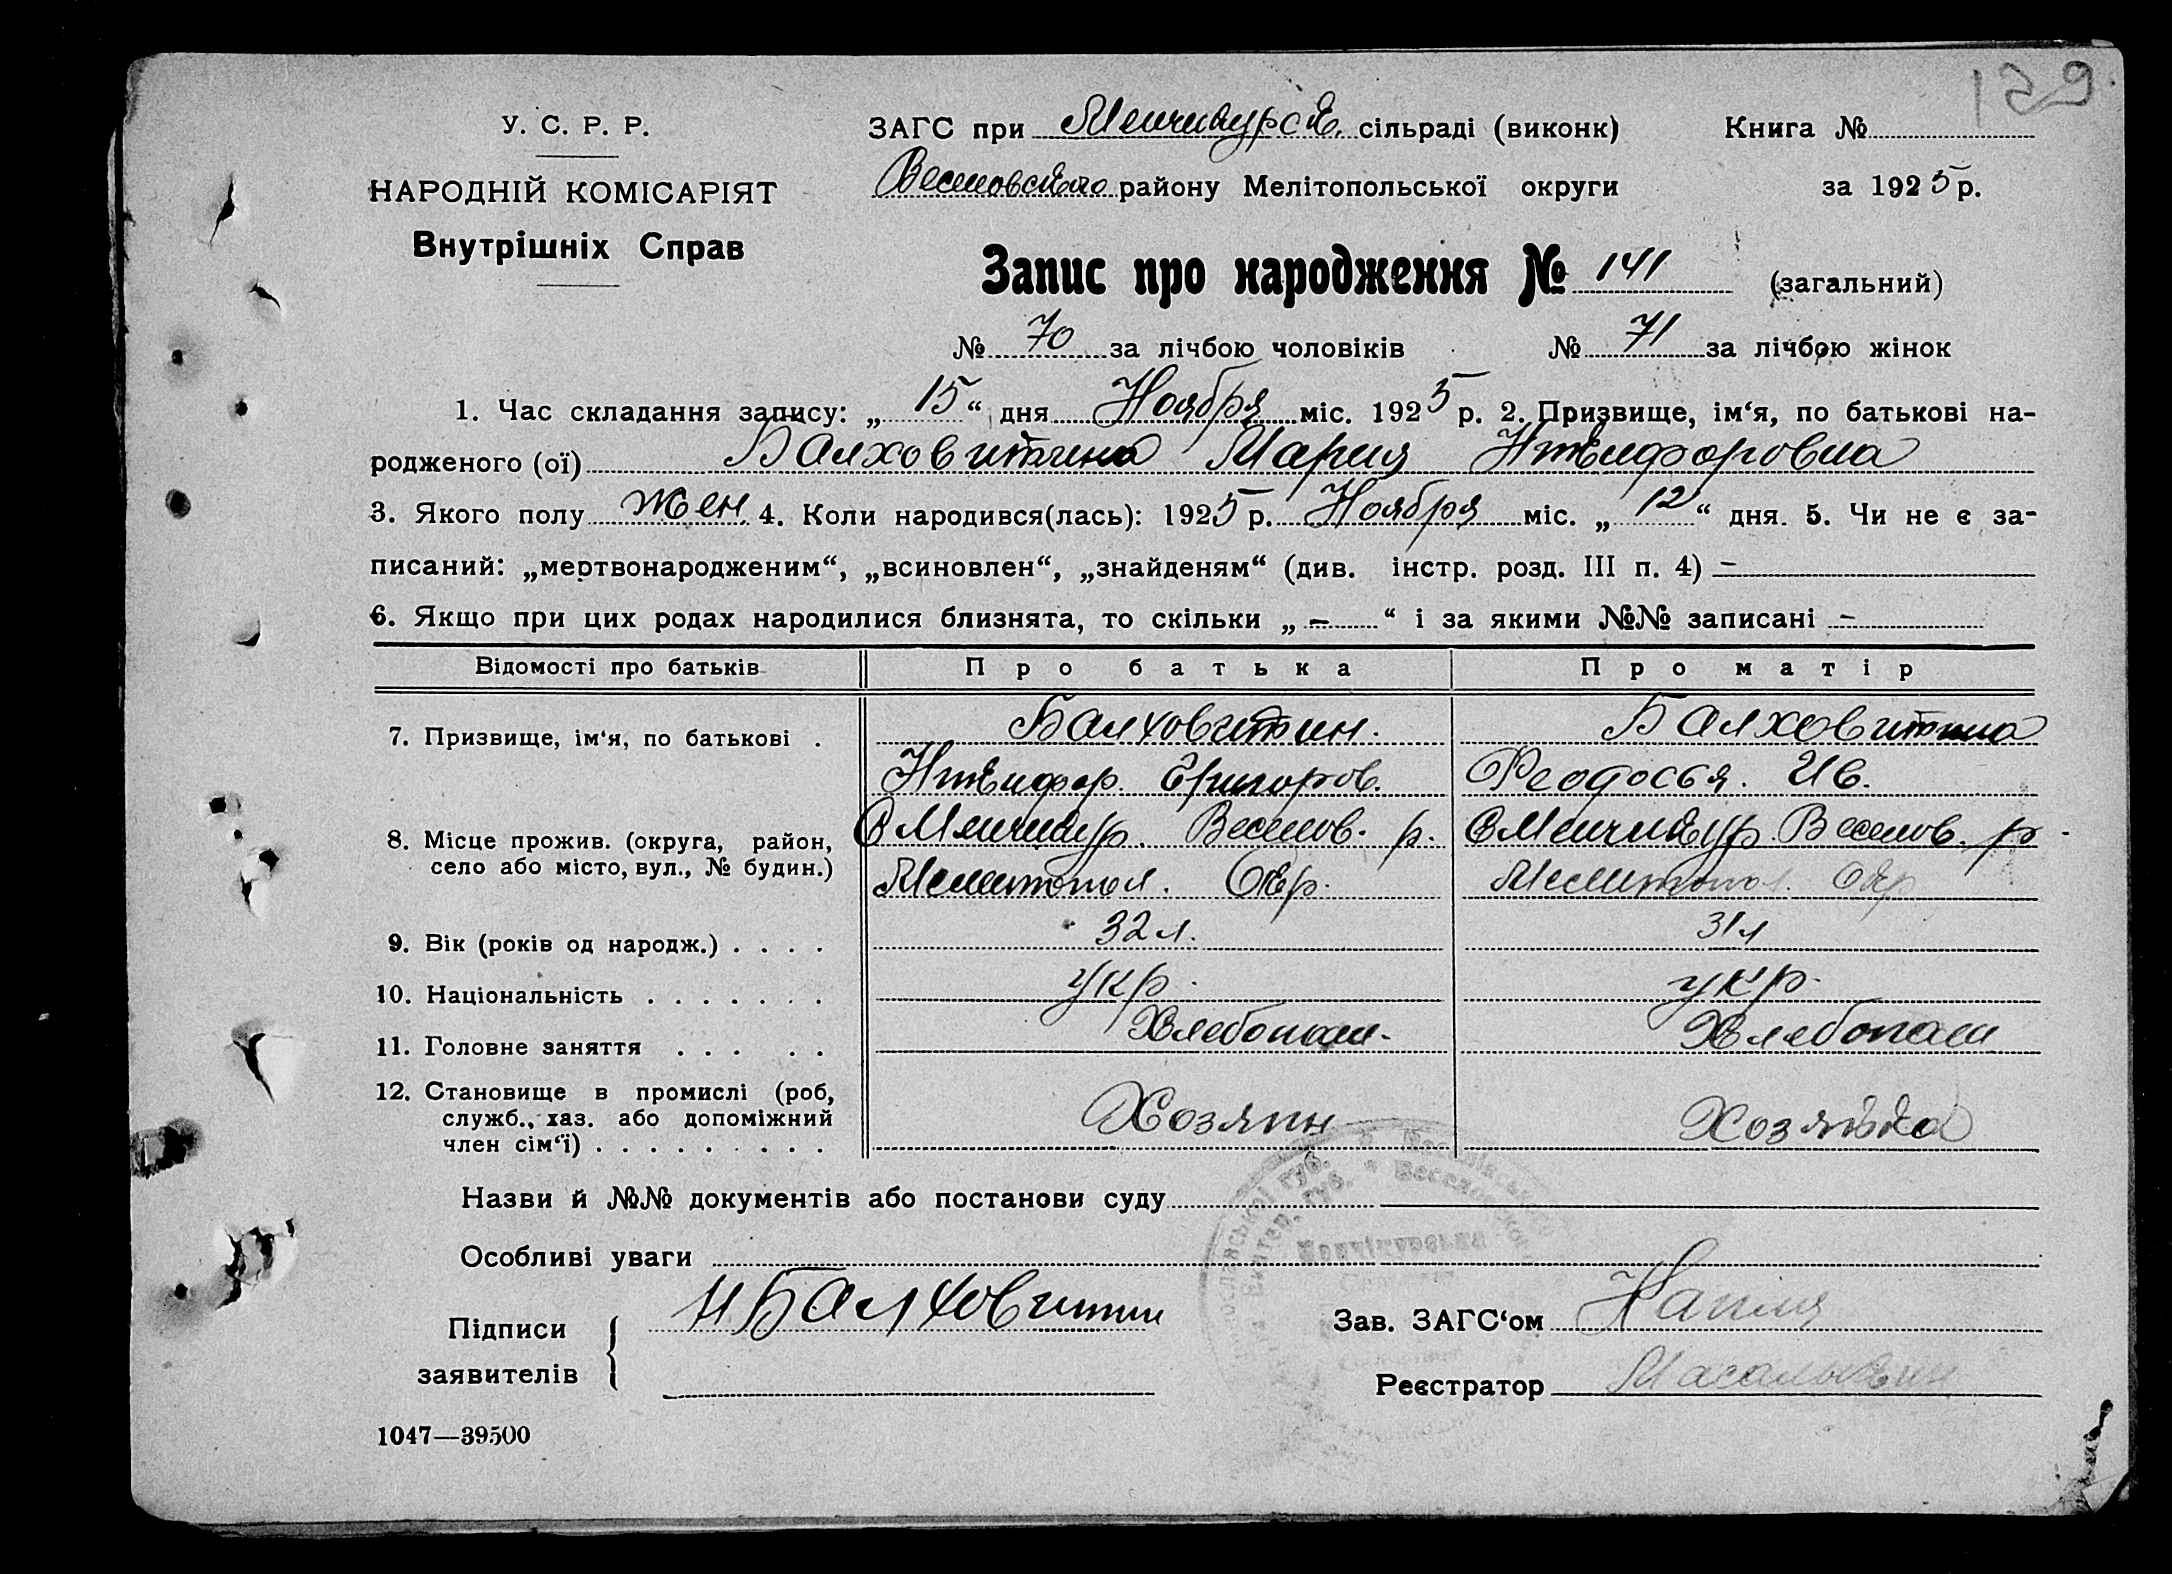 159
У. С. Р. Р.
НАРОДНІЙ КОМІСАРІЯТ
Внутрішніх Справ
ЗАГС при Менчикурск. сільраді (виконк) Книга №
Веселовского району Мелітопольської округи за 1925 р.
Запис про народження № 141 (загальний)
№ 70 за лічбою чоловіків № 71 за лічбою жінок
1. Час складання запису: „ 15 “ дня Ноября міс. 1925 р. 2. Призвище, ім‘я, по батькові на-
родженого (ої) Балховитина Мария Никифоровна
3. Якого полу жен. 4. Коли народився(лась): 1925 р. Ноября міс. „ 12 “ дня. 5. Чи не є за-
писаний: „мертвонародженим“, „всиновлен“, „знайденям“ (див. інстр. розд. III п. 4) –
6. Якщо при цих родах народилися близнята, то скільки „ – “ і за якими №№ записані –
Відомості про батьків Про батька Про матір
7. Призвище, ім‘я, по батькові . Балховитин. Балховитина
Никифор. Григоров. Феодосья. Ив.
8. Місце прожив. (округа, район, с Менчикур. Веселов. р. с Менчикур. Веселов. р.
село або місто, вул., № будин.) Мелитопол. Окр. Мелитопол. Окр
9. Вік (років од народж.) . . . . 32 л. 31 л
10. Національність . . . . . . . укр. укр.
11. Головне заняття . . . . . Хлебопаш. Хлебопаш
12. Становище в промислі (роб,
служб., хаз. або допоміжний Хозяин Хозяйка
член сім‘ї) . . . . . . . . .
Назви й №№ документів або постанови суду
Особливі уваги
Підписи
заявителів
Н Балховитин
Зав. ЗАГС‘ом
Реєстратор
1047—39500